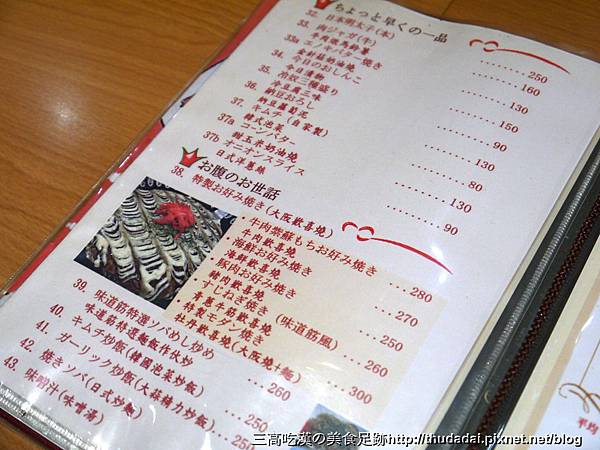 ちょっと早くの一品
32. 日本明太子(本) ........250
33. 肉ジャガ(牛) ........160
牛肉燉馬鈴薯
33a エノキバター焼き ........130
金針菇奶油燒
34. 今日のおしんこ
今日漬物 ........150
35. 冷奴三種盛り
冷豆腐三味 ........90
36. 納豆おろし
納豆蘿蔔泥 ........130
37. キムチ(自家製)
韓式泡菜 ........80
37a コーンバター
鐵玉米奶油燒 ........130
37b オニオンスライス
日式洋蔥絲 ........90
お腹のお世話
38. 特製お好み焼き(大阪歡喜燒)
牛肉紫蘇もちお好み焼き ...280
牛肉歡喜燒
海鮮お好み焼き ...270
海鮮歡喜燒
豚肉お好み焼き ...250
豬肉歡喜燒
すじねぎ焼き(味道筋風) ...260
青蔥牛筋歡喜燒
特製モダン焼き ...300
牡丹歡喜燒(大阪燒+麵)
39. 味道筋特選ソバめし炒め
味道筋特選麵飯作伙炒 ...260
40. キムチ炒飯(韓國泡菜炒飯) ...250
41. ガーリック炒飯(大蒜精力炒飯) ...250
42. 焼きソバ(日式炒麵) ...250
43. 味噌汁(味噌湯)
平均
三高吃漢の美食足跡http://thudadai.pixnet.net/blog